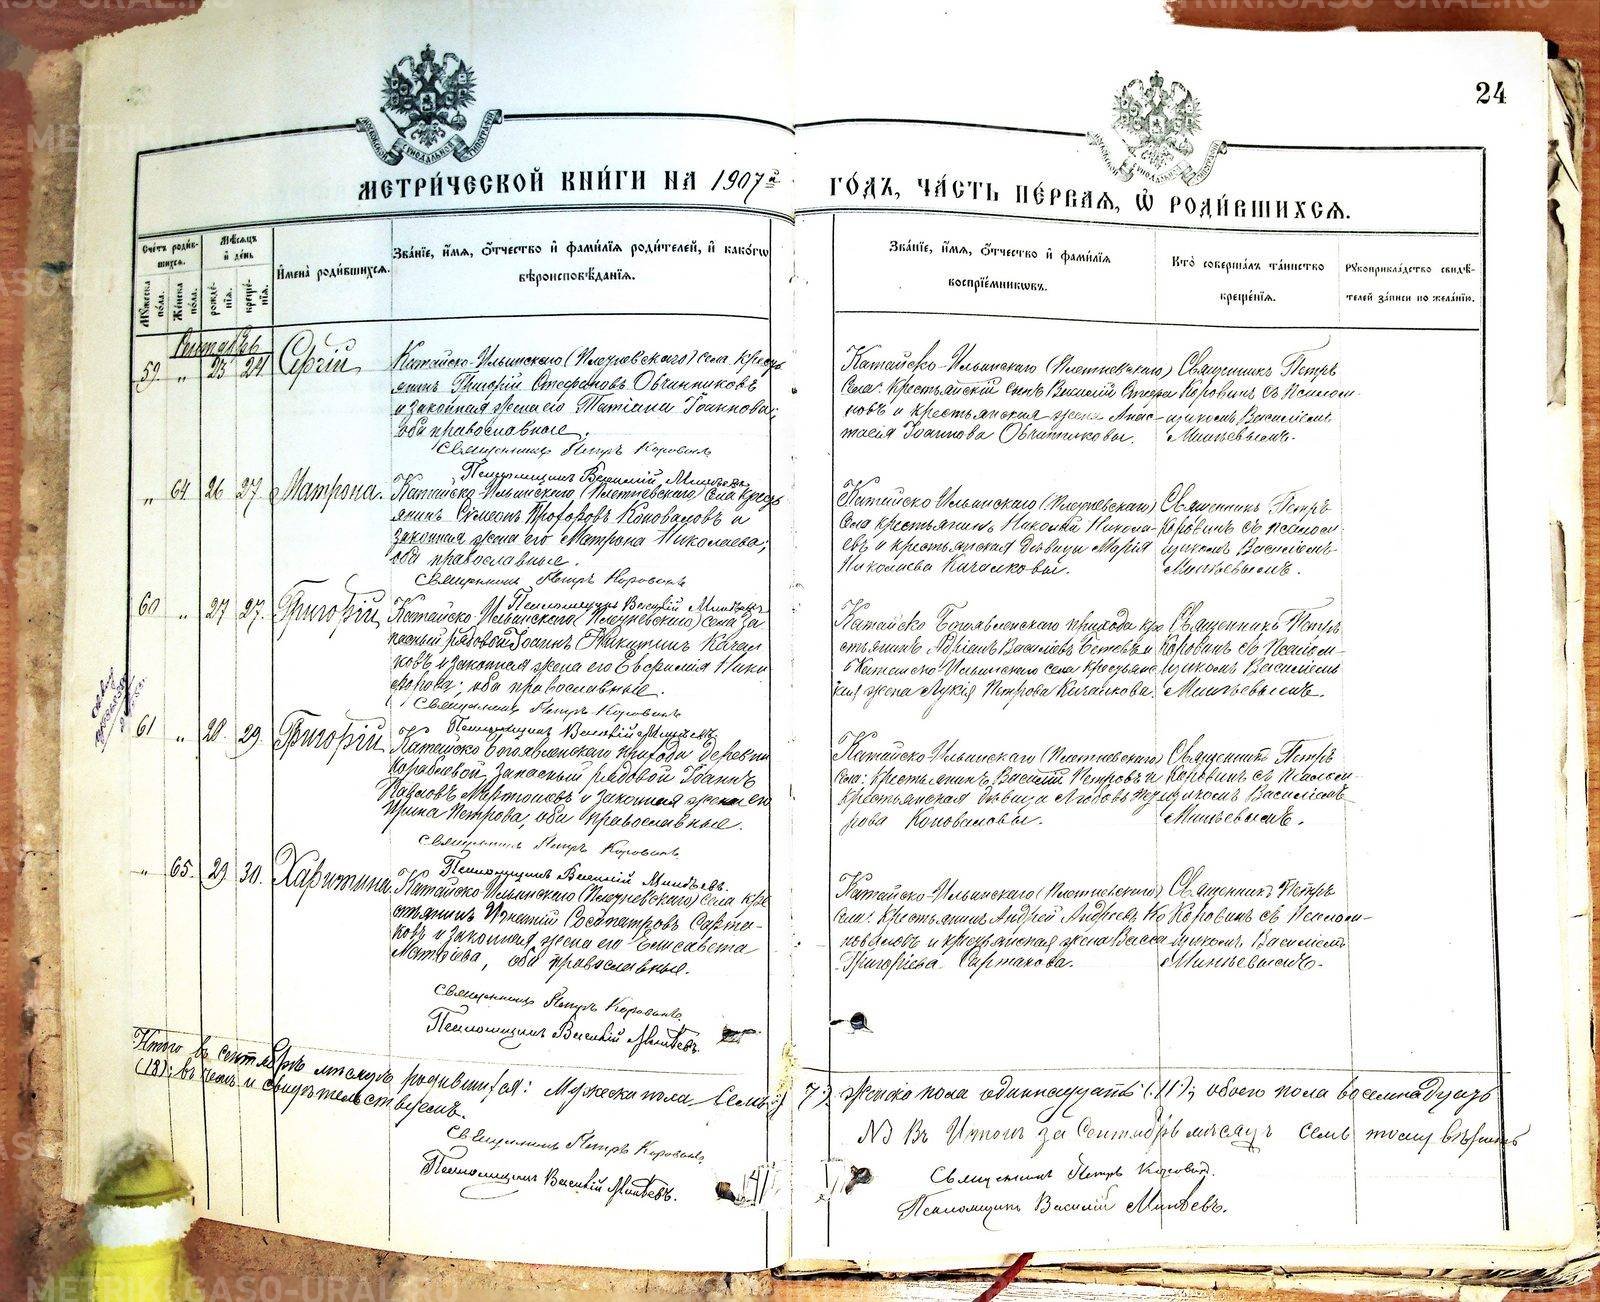 24
МЕТРИ́ЧЕСКОЙ КНИ́ГИ НА 1907й
ГО́ДЪ, ЧА́СТЬ ПЕ́РВАЯ, Ѡ РОДИ́ВШИХСЯ.
Сче́тъ роди́вшихся.
Му́жеска по́ла.
Же́нска по́ла.
Мѣ́сяцъ и де́нь
рожде́нія.
креще́нія.
И҆мена̀ роди́вшихся.
Зва́нїе, и҆́мя, ѻ҆́тчество и҆ фами́лїя роди́телей, и҆ како́гѡ
вѣроисповѣ́данїя.
Зва́нїе, и҆́мя, ѻ҆́тчество и҆ фами́лїя
воспрїе́мникѡвъ.
Кто̀ соверша́лъ та́инство
креще́нїя.
Рꙋкоприкла́дство свидѣ́-
телей за́писи по жела́нїю.
Сентябрь
59 " 23 24 Сергій
Катайско-Ильинскаго (Плетневскаго) села кресть
янинъ Григорій Стефановъ Овчинниковъ
и законная жена его Татіана Іоаннова;
оба православные.
Священникъ Петръ Коровинъ
Псаломщикъ Василій Минѣевъ
Катайско-Ильинскаго (Плетневскаго)
села: крестьянскій сынъ Василій Стефа
новъ и крестьянская жена Анас-
тасія Іоаннова Овчинниковы.
Священникъ Петръ
Коровинъ съ псалом-
щикомъ Василіемъ
Минѣевымъ.
" 64 26 27 Матрона.
Катайско-Ильинскаго (Плетневскаго) села кресть
янинъ Сѵмеонъ Прохоровъ Коноваловъ и
законная жена его Матрона Николаева;
оба православные.
Священникъ Петръ Коровинъ
Псаломщикъ Василій Минѣевъ
Катайско-Ильинскаго (Плетневскаго)
села крестьянинъ Николай Никола-
евъ и крестьянская дѣвица Марія
Николаева Качалковы.
Священникъ Петръ
Коровинъ съ псалом-
щикомъ Василіемъ
Минѣевымъ.
60 " 27 27. Григорій
Катайско-Ильинскаго (Плетневскаго) села за
пасный рядовой Іоаннъ Никитинъ Качал
ковъ и законная жена его Евфимія Ники
форова; оба православные.
Священникъ Петръ Коровинъ
Псаломщикъ Василій Минѣевъ
Катайско Богоявленскаго прихода кре
стьянинъ Адріанъ Василіевъ и
Катайско-Ильинскаго села крестьянс
кая жена Лукія Петрова Качалкова.
Священникъ Петръ
Коровинъ съ псалом-
щикомъ Василіемъ
Минѣевымъ.
61 " 28 29. Григорій
Катайско Богоявленскаго прихода деревни
Корабловой запасный рядовой Іоаннъ
Павловъ и законная жена его
Ирина Петрова, оба православные.
Священникъ Петръ Коровинъ
Псаломщикъ Василій Минѣевъ.
Катайско-Ильинскаго (Плетневскаго)
села: крестьянинъ Василій Петровъ и
крестьянская дѣвица Любовь
рова Коноваловы.
Священникъ Петръ
Коровинъ съ псалом-
щикомъ Василіемъ
Минѣевымъ.
" 65. 29 30. Харитина
Катайско-Ильинскаго (Плетневскаго) села кре
стьянинъ Игнатій Сосипатровъ Сарта-
ковъ и законная жена его Елисавета
Матѳіева, оба православные.
Священникъ Петръ Коровинъ
Псаломщикъ Василій Минѣевъ.
Катайско-Ильинскаго (Плетневскаго)
села: крестьянинъ Андрей Андреевъ Ко
новаловъ и крестьянская жена Васса
Григоріева Сартакова.
Священникъ Петръ
Коровинъ съ псалом-
щикомъ Василіемъ
Минѣевымъ.
Итого въ сентябрѣ мѣсяцѣ родившихся: мужеска пола семь (7:) женска пола одиннадцать (11); обоего пола восемнадцать
(18): въ чемъ и свидѣтельствуемъ.
Священникъ Петръ Коровинъ
Псаломщикъ Василій Минѣевъ.
NB Въ итогѣ за сентябрь мѣсяцъ семь тому вѣрить
Священникъ Петръ Коровинъ.
Псаломщикъ Василій Минѣевъ.
METRIKI.GASO-URAL.RU